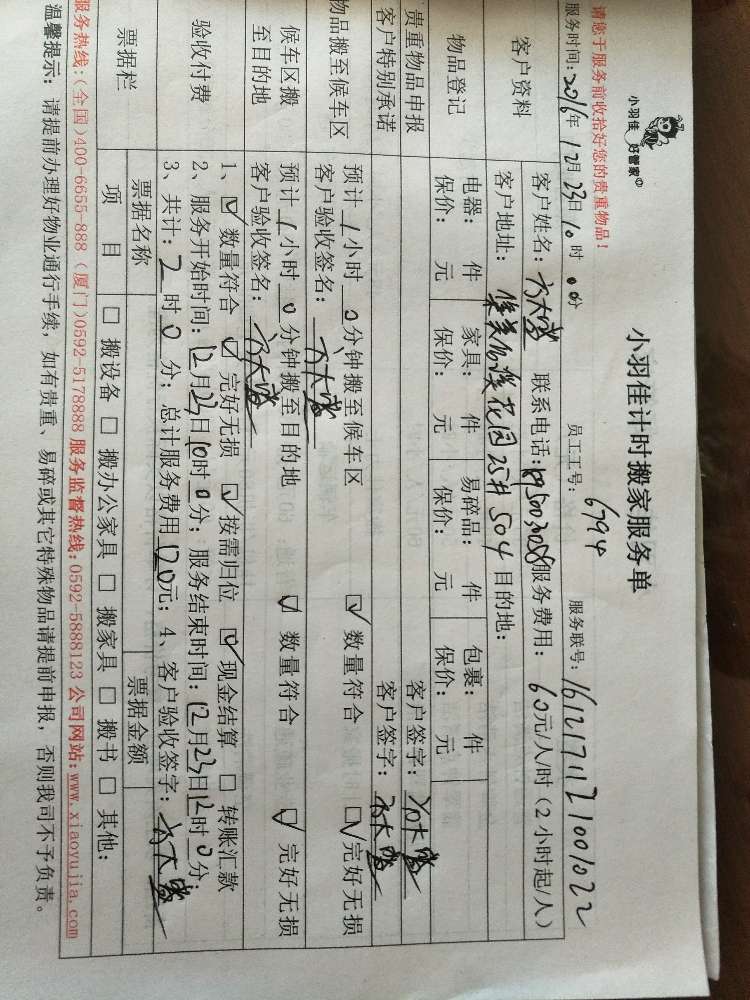 请您于服务前收拾好您的贵重物品!
小羽佳 好管家
小羽佳计时搬家服务单
服务时间:2016年12月23日10时00分 员工工号:6794 服务联号:1612171121001022
客户资料 客户姓名: 联系电话: 服务费用:60元/人/时(2小时起/人)
客户地址: 花园25井504 目的地:
物品登记 电器: 件 家具: 件 易碎品: 件 包裹: 件
保价: 元 保价: 元 保价: 元 保价: 元
贵重物品申报 客户签字:
客户特别承诺 客户签字:
物品搬至候车区 预计1小时0分钟搬至候车区 ☑ 数量符合 ☑ 完好无损
客户验收签名:
候车区搬至目的地 预计1小时0分钟搬至目的地 ☑ 数量符合 ☑ 完好无损
客户验收签名:
验收付费 1、☑ 数量符合 ☑ 完好无损 ☑ 按需归位 ☑ 现金结算 □ 转账汇款
2、服务开始时间:12月23日10时0分;服务结束时间:12月23日12时0分;
3、共计:2时0分;总计服务费用120元;4、客户验收签字:
票据栏 票据名称 票据金额
项 目 □ 搬设备 □ 搬办公家具 □ 搬家具 □ 搬书 □ 其他:
服务热线:(全国)400-6655-888(厦门)0592-5178888 服务监督热线:0592-5888123 公司网站:www.xiaoyujia.com
温馨提示: 请提前办理好物业通行手续,如有贵重、易碎或其它特殊物品请提前申报,否则我司不予负责。